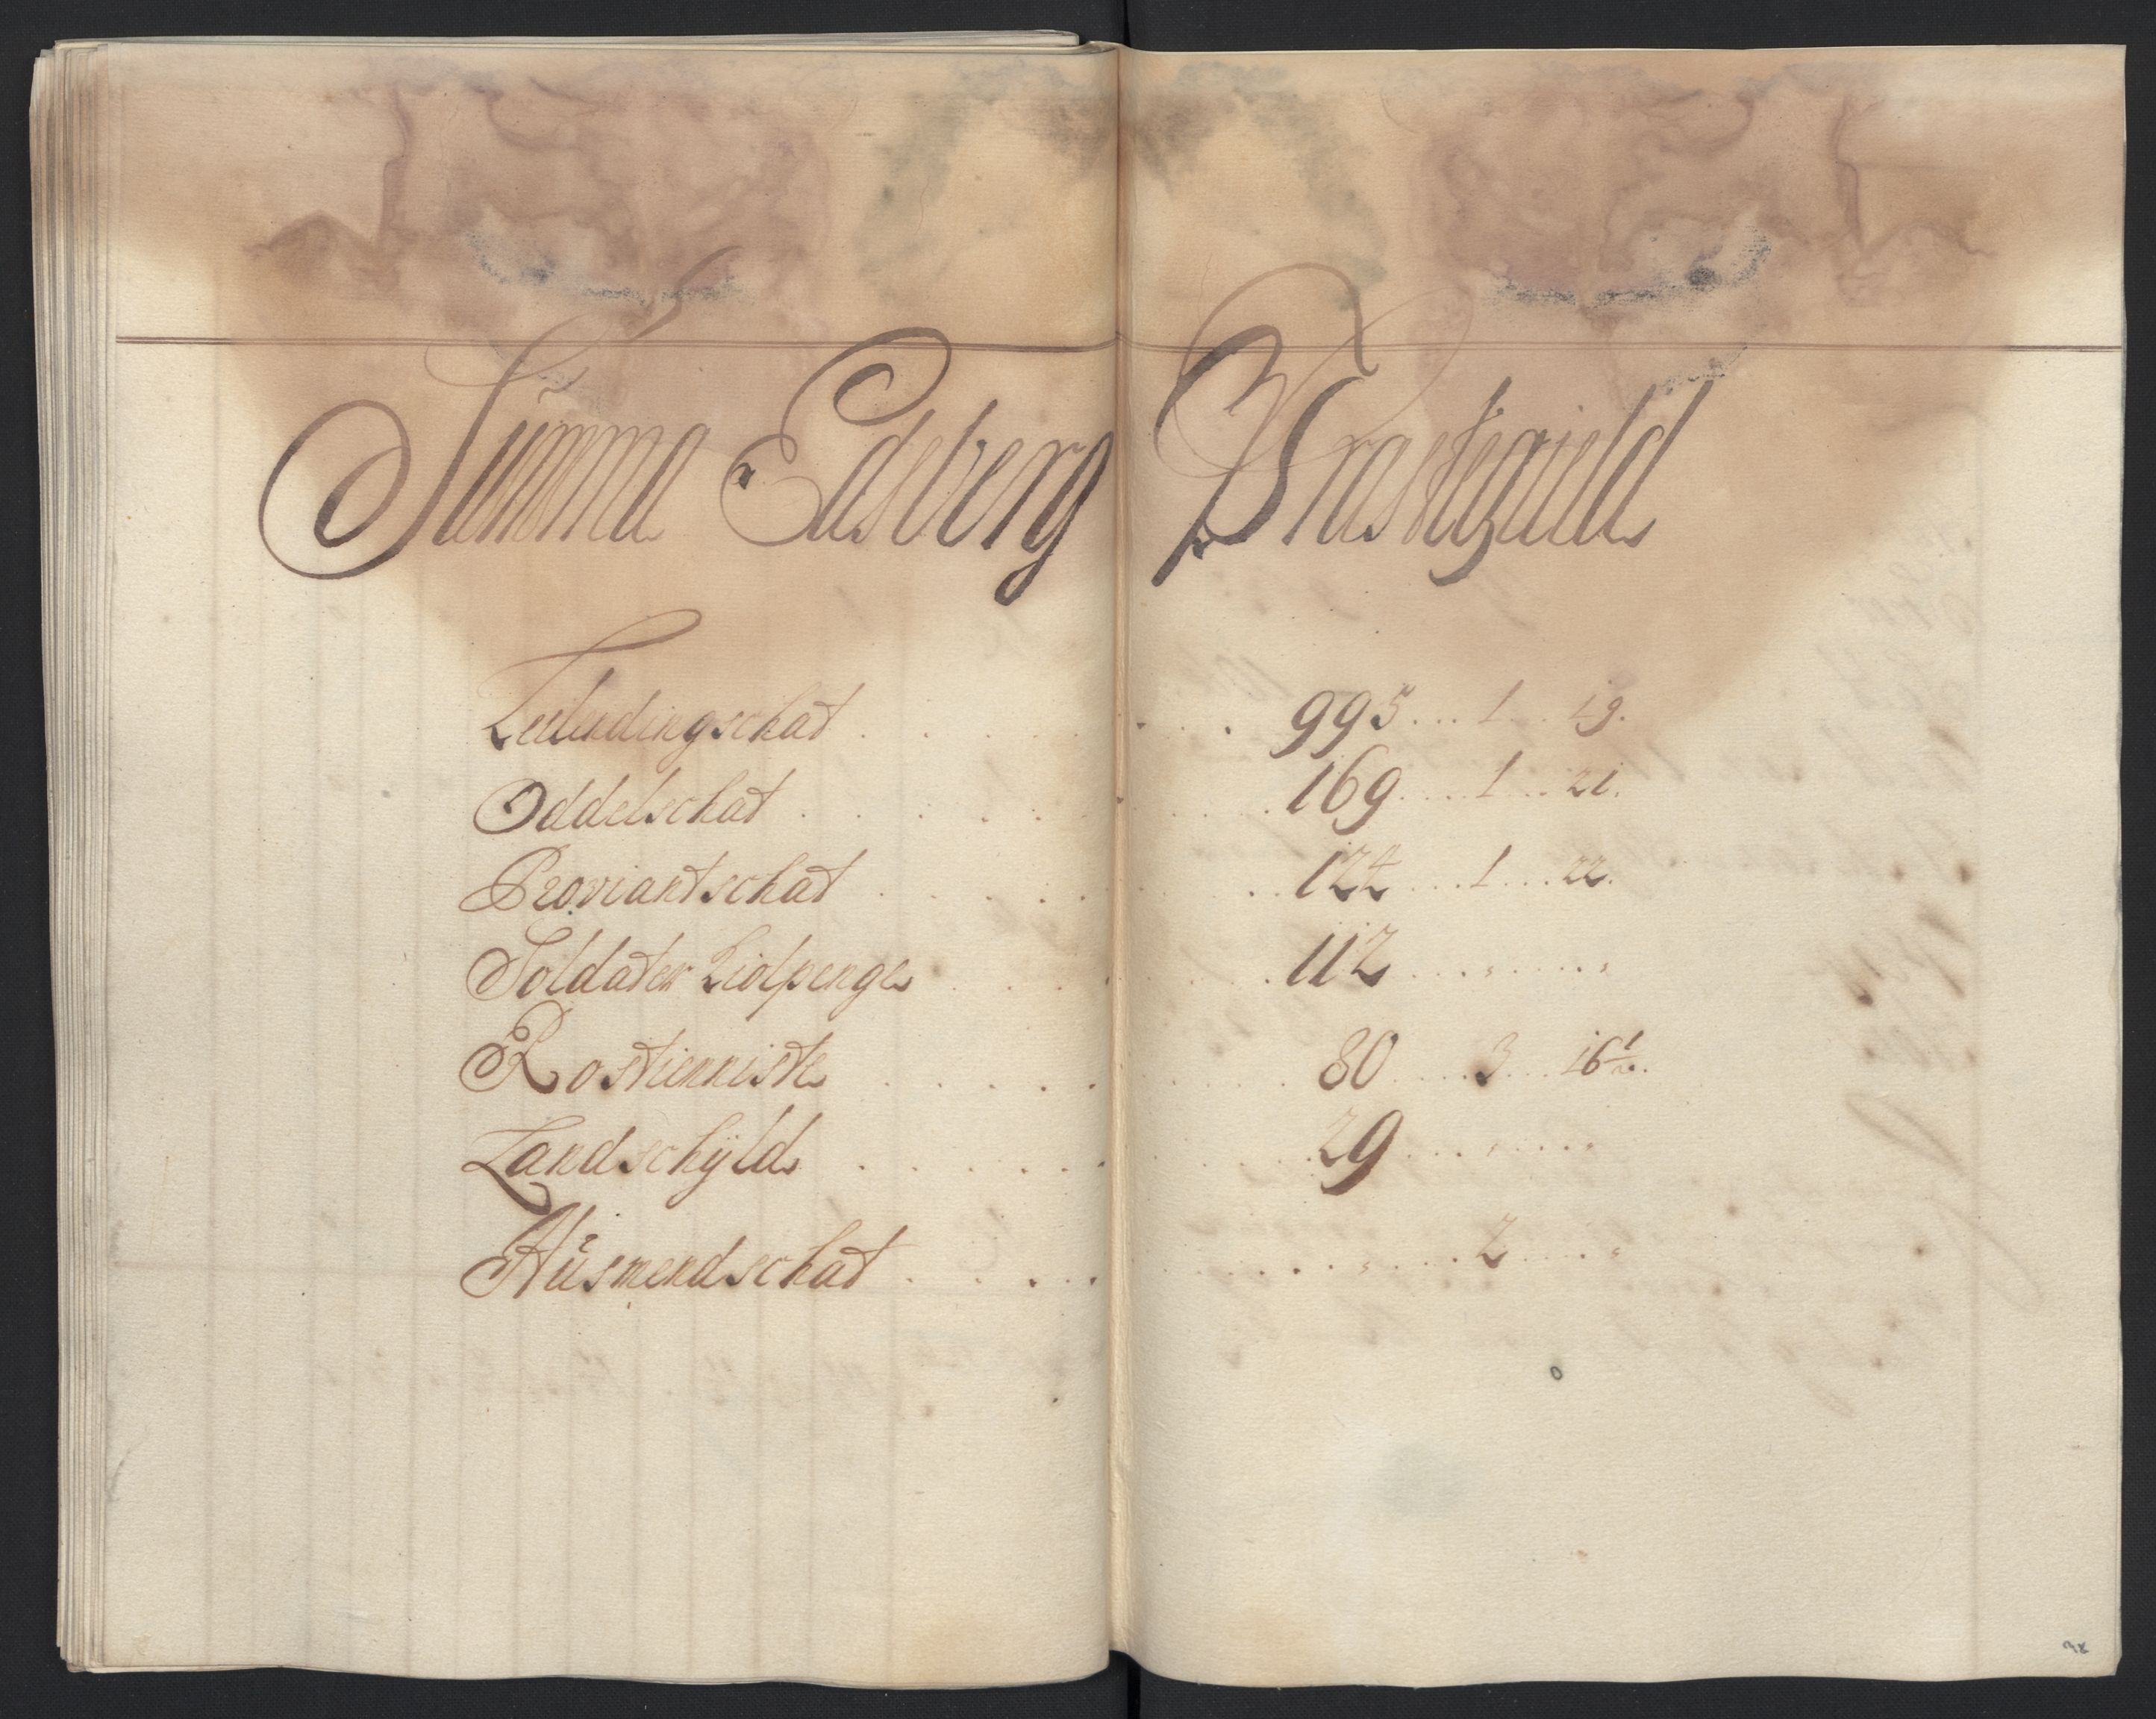 Summa Edsberg Præstegield
Leilendingschat . . . . . . . . 995 . . . 1 . . . 19.
Oddelschat . . . . . . . . 169 . . . 1 . . . 21.
Proviantschat . . . . . . . . 124 . . . 1 . . . 22.
Soldater Kiolpenge . . . . . 112 . . . . . . . .
Rostienniste . . . . . . . . 80 . . . 3 . . . 16½.
Landschÿld . . . . . . . . 29 . . . . . . . .
Hůsmendschat . . . . . . . . . . . 2 . . . .